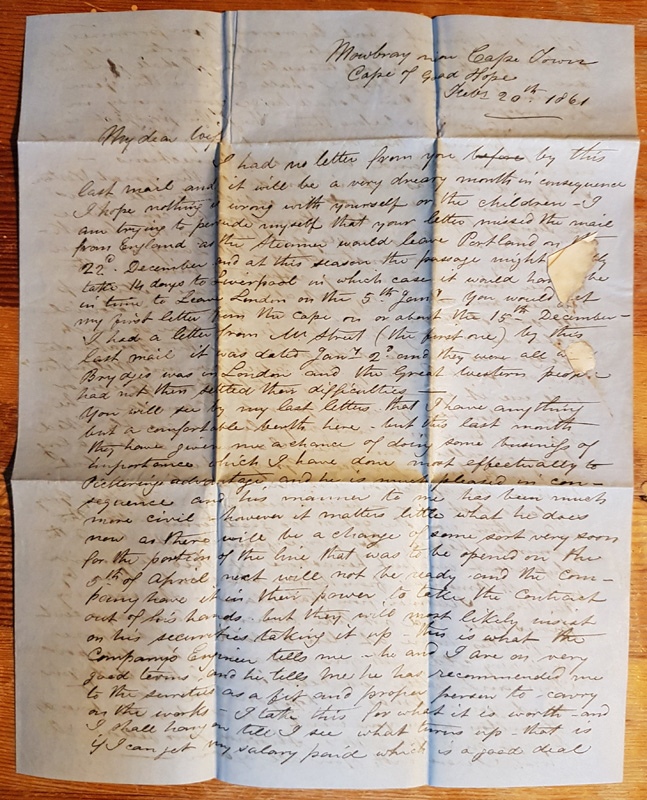 Mowbray near Cape Town
Cape of Good Hope
Feby 20th 1861
My dear Wife
I had no letter from you before by this
last mail and it will be a very dreary month in consequence
I hope nothing is wrong with yourself or the children - I
am trying to persude myself that your letter missed the mail
from England as the Steamer would leave Portland on
22d. December and at this season the passage might
take 14 days to Liverpool in which case it would have be
in time to Leave London on the 5th Jany - You would
my first letter from the Cape on or about the 15th December -
I had a letter from Mr Street (the first one) by this
last mail it was dated Jany 2d and they were all
Brydjes was in London and the Great Western people
had not then settled their difficulties -
You will see by my last letters that I have anything
but a comfortable berth here - but this last month
they have given me a chance of doing some business of
importance which I have done most effectually to
Pickerings advantage and he is much pleased in con-
sequence and his manner to me has been much
more civil - however it matters little what he does
now as there will be a change of some sort very soon
for the portion of the line that was to be opened on the
5th of April next will not be ready - and the Com-
pany have it in their power to take the Contract
out of his hands - but they will most likely insist
on his securities taking it up - this is what the
Company's Engineer tells me - he and I are on very
good terms and he tells me he has recommended me
to the sureties as a fit and proper person to carry
on the works - I take this for what it is worth - and
I shall hang on till I see what turns up - that is
if I can get my salary paid which is a good deal